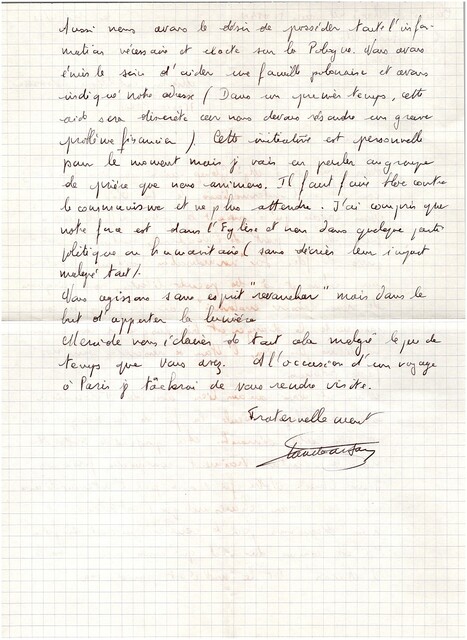 Aussi nous avons le désir de posséder toute l'infor-
mation nécessaire et exacte sur la Pologne. Nous avons
émis le soin d'aider une famille polonaise et avons
indiqué notre adresse (Dans un premier temps, cette
aide sera discrète car nous devons résoudre un grave
problème financier). Cette initiative est personnelle
pour le moment mais j vais en parler au groupe
de prière que nous animons. Il faut faire bloc contre
le communisme et ne plus attendre. J'ai compris que
notre force est dans l'Eglise et non dans quelque parti
politique ou humanitaire (sans décrier leur impact
malgré tout).
Nous agissons sans esprit "revanchar" mais dans le
but d'apporter la lumière
Merci de nous éclairer de tout cela malgré le peu de
temps que vous avez. A l'occasion d'un voyage
à Paris j tâcherai de vous rendre visite.
Fraternellement